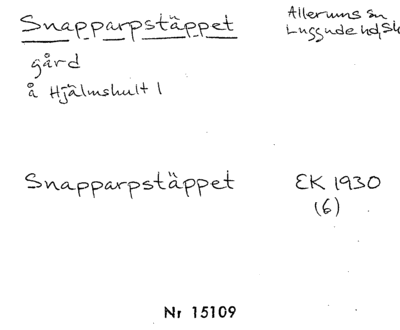 Snapparpstäppet
Allerums sn
Luggude hd, Sk
gård
å Hjälmshult 1
Snapparpstäppet EK 1930
(6)
Nr 15109